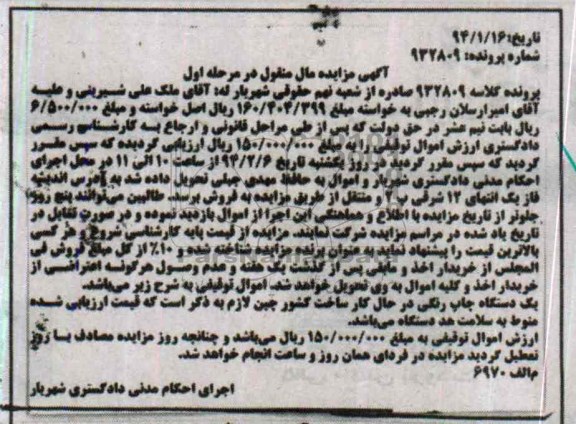 تاریخ: ۹۴/۱/۱۶
شماره پرونده: ۹۳۲۸۰۹
آگهی مزایده مال منقول در مرحله اول
پرونده کلاسه ۹۳۲۸۰۹ صادره از شعبه نهم حقوقی شهریار له: آقای ملک علی شیرینی و علیه
آقای امیرارسلان رجبی به خواسته مبلغ ۱۶۰/۴۰۴/۳۹۹ ریال اصل خواسته و مبلغ ۶/۵۰۰/۰۰۰
ریال بابت نیم عشر در حق دولت که پس از طی مراحل قانونی و ارجاع به کارشناسی رسمی
دادگستری ارزش اموال توقیفی به مبلغ ۱۵۰/۰۰۰/۰۰۰ ریال ارزیابی گردیده که سپس مقرر
گردید که سپس مقرر گردید در روز یکشنبه تاریخ ۹۴/۲/۶ از ساعت ۱۰ الی ۱۱ در محل اجرای
احکام مدنی دادگستری شهریار و اموال به حافظ مهدی جبلی تحویل داده شد به آدرس اندیشه
فاز یک انتهای ۱۲ شرقی و منتقل از طریق مزایده به فروش برسد. طالبین می‌توانند پنج روز
جلوتر از تاریخ مزایده با اطلاع و هماهنگی این اجرا از اموال بازدید نموده و در صورت تقابل در
تاریخ یاد شده در مراسم مزایده شرکت نمایند. مزایده از قیمت پایه کارشناسی شروع و هر کسی
بالاترین قیمت را پیشنهاد نماید به عنوان برنده مزایده شناخته شده و ۱۰٪ از کل مبلغ فروش فی
المجلس از خریدار اخذ و مابقی پس از گذشت یک هفته و عدم وصول هرگونه اعتراضی از
خریدار اخذ و کلیه اموال به وی تحویل خواهد شد. اموال توقیفی به شرح زیر می‌باشد.
یک دستگاه چاپ رنگی در حال کار ساخت کشور چین لازم به ذکر است که قیمت ارزیابی شده
منوط به سلامت هد دستگاه می‌باشد.
ارزش اموال توقیفی به مبلغ ۱۵۰/۰۰۰/۰۰۰ ریال می‌باشد و چنانچه روز مزایده مصادف با روز
تعطیل گردید مزایده در فردای همان روز و ساعت انجام خواهد شد.
م‌الف ۶۹۷۰
اجرای احکام مدنی دادگستری شهریار